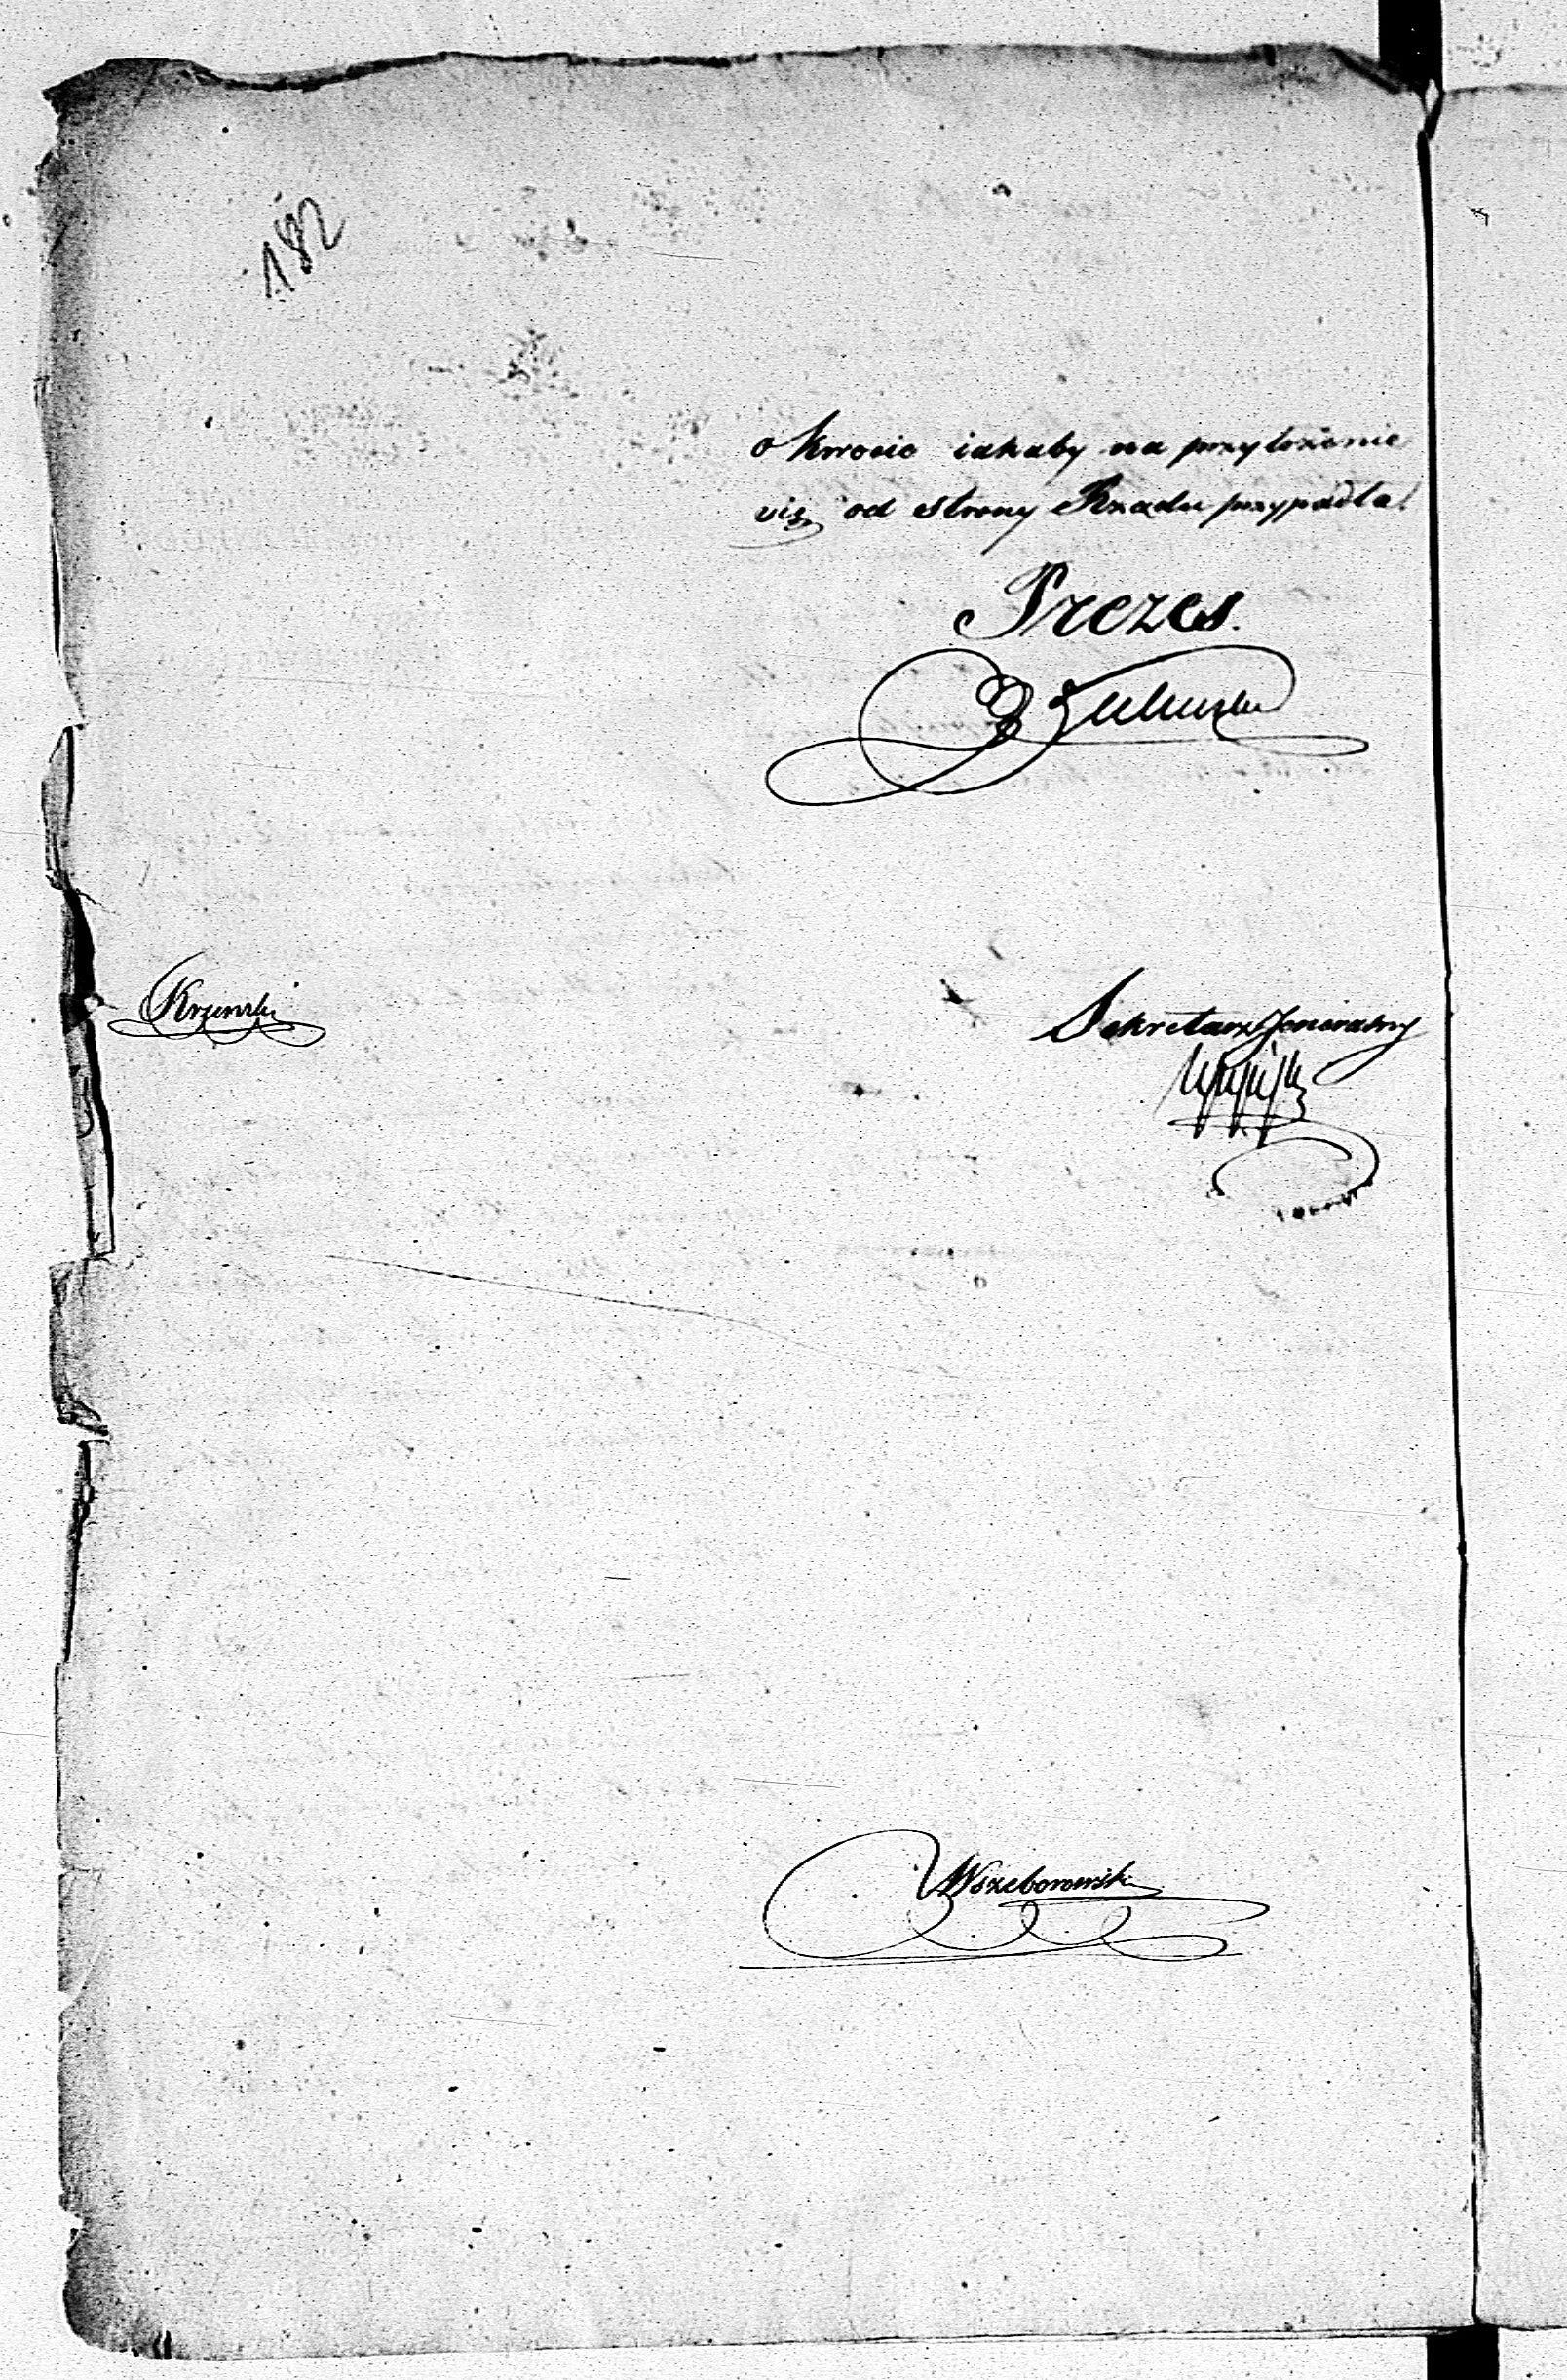 182
o kwocie iakaby na przyłożenie
się od strony Rządu przypadła.
Prezes.
Sekretarz Jeneralny
Wszeborowski